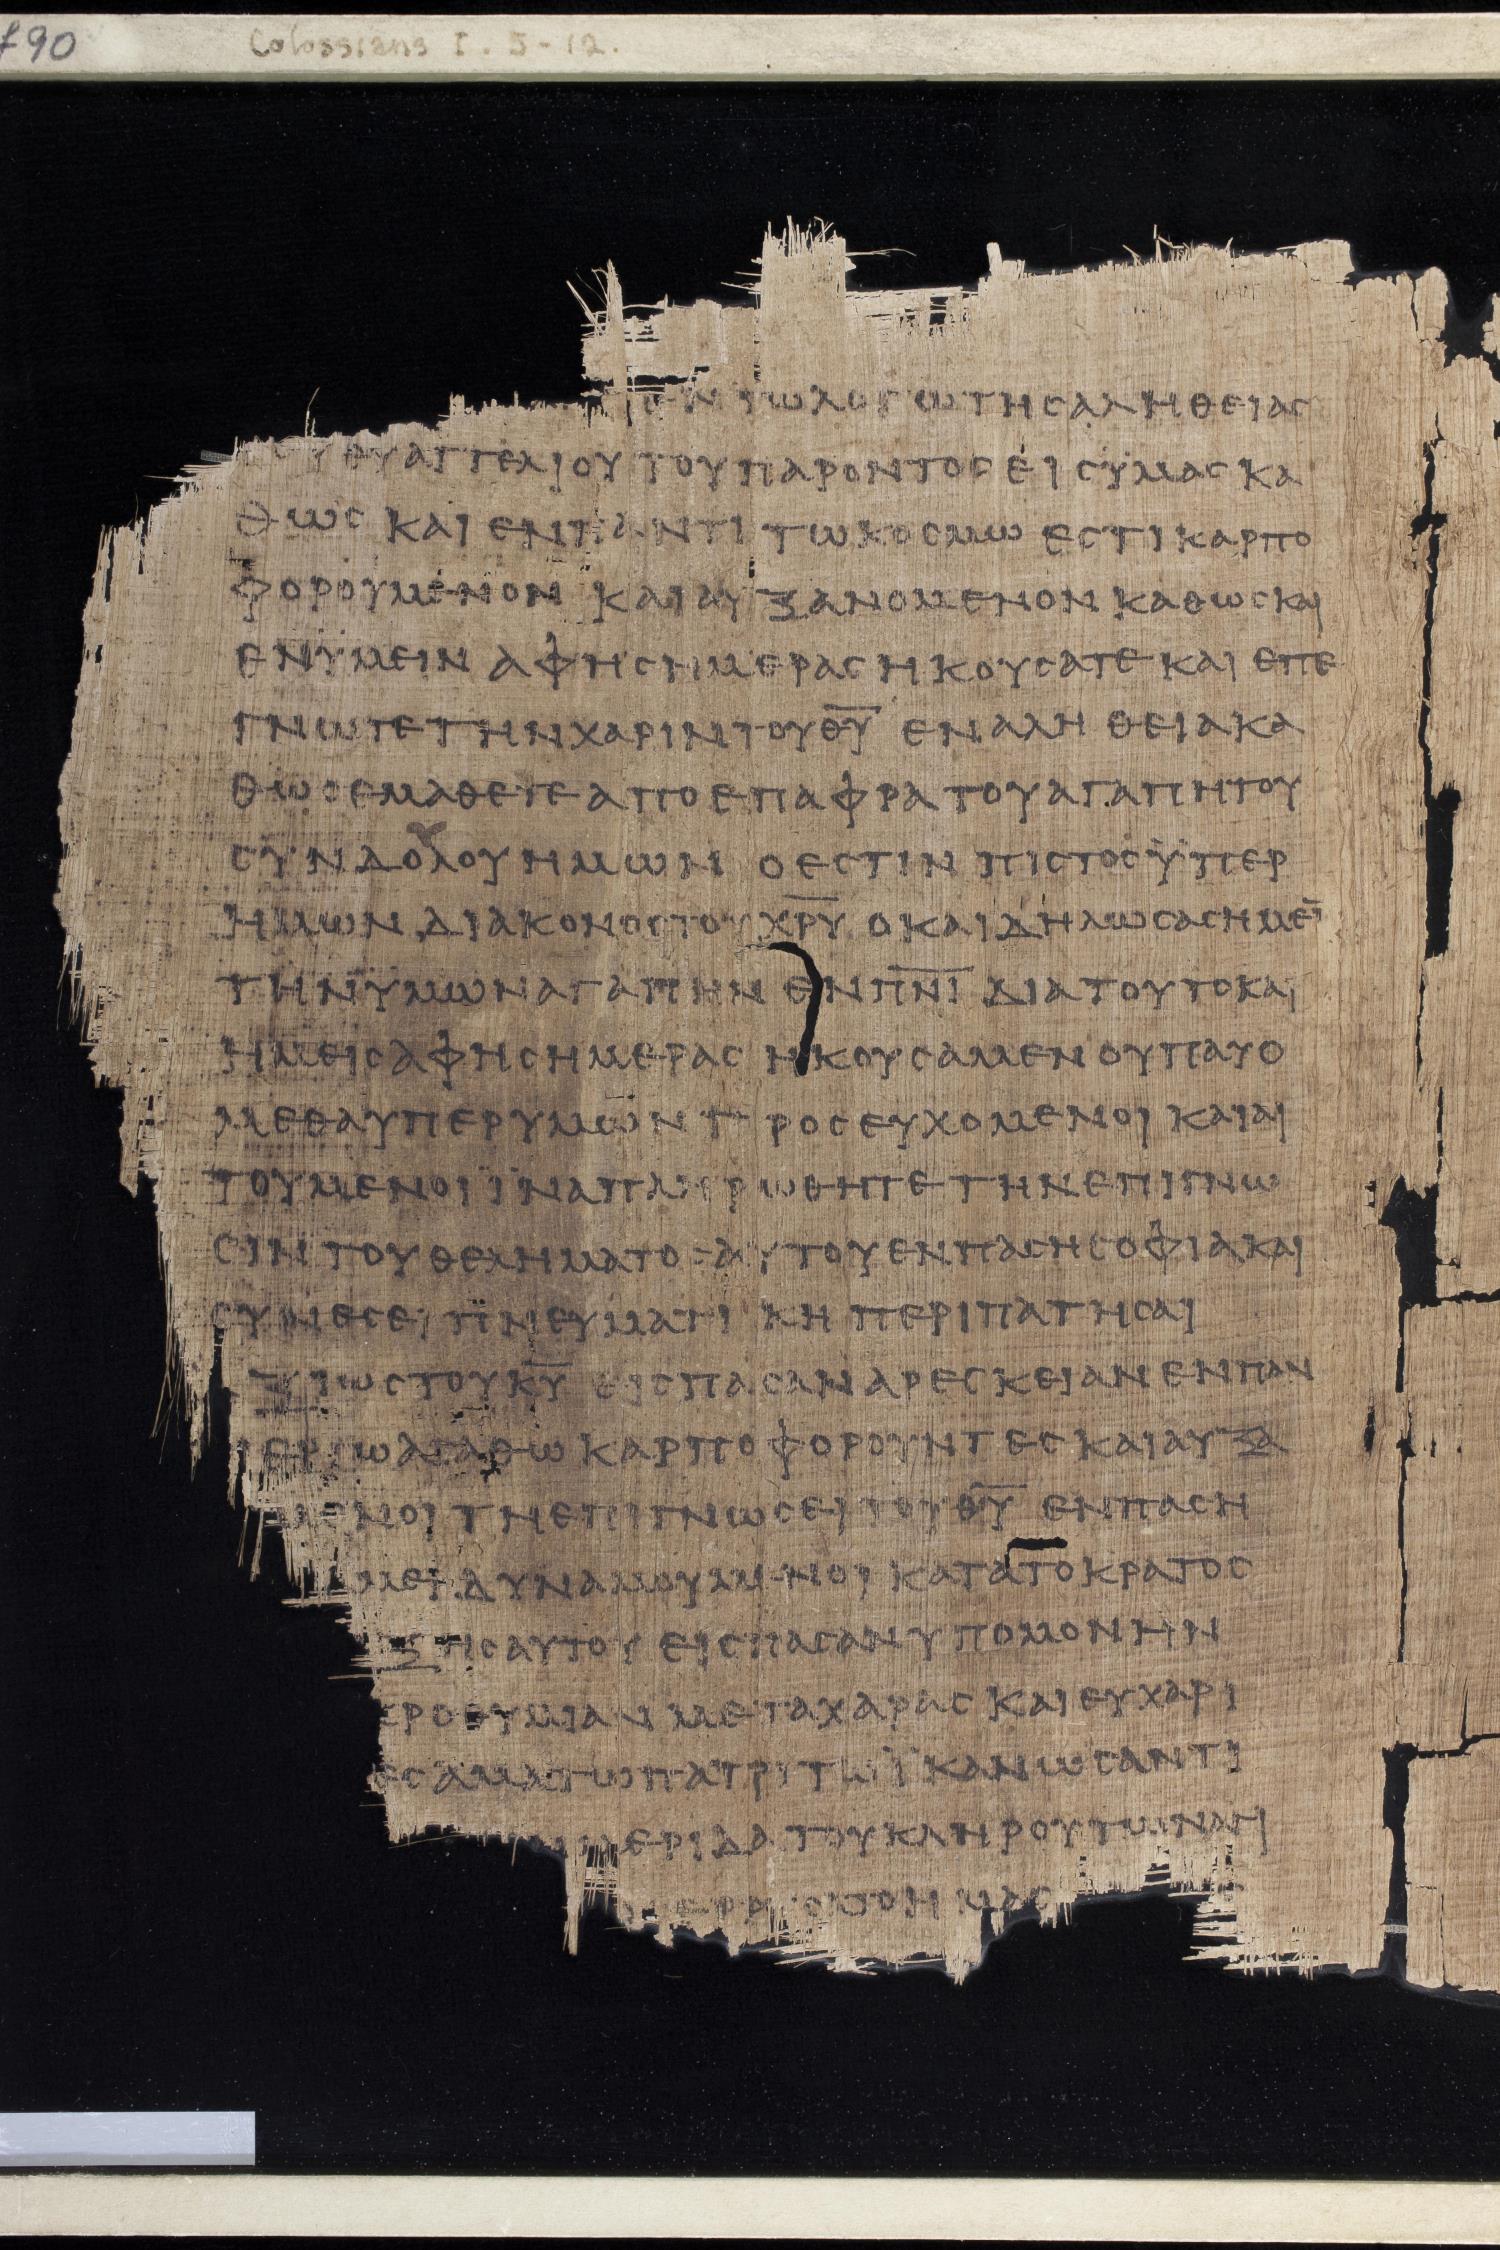 f90 Colossians I. 5-12.
ΕΝ ΤΩ ΛΟΓΩ ΤΗС ΑΛΗΘΕΙΑС
ΕΥΑΓΓΕΛΙΟΥ ΤΟΥ ΠΑΡΟΝΤΟС ΕΙС ΫΜΑС ΚΑ
ΘΩС ΚΑΙ ΕΝ ΠΑΝΤΙ ΤΩ ΚΟСΜΩ ΕСΤΙ ΚΑΡΠΟ
ΦΟΡΟΥΜΕΝΟΝ ΚΑΙ ΑΥΞΑΝΟΜΕΝΟΝ ΚΑΘΩС ΚΑΙ
ΕΝ ΫΜΕΙΝ ΑΦ ΗС ΗΜΕΡΑС ΗΚΟΥСΑΤΕ ΚΑΙ ΕΠΕ
ΓΝΩΤΕ ΤΗΝ ΧΑΡΙΝ ΤΟΥ Θ̅Υ̅ ΕΝ ΑΛΗΘΕΙΑ ΚΑ
ΘΩС ΕΜΑΘΕΤΕ ΑΠΟ ΕΠΑΦΡΑ ΤΟΥ ΑΓΑΠΗΤΟΥ
СΥΝΔΟΥΛΟΥ ΗΜΩΝ Ο ΕСΤΙΝ ΠΙСΤΟС ΫΠΕΡ
ΗΜΩΝ ΔΙΑΚΟΝΟС ΤΟΥ Χ̅Ρ̅Υ̅ Ο ΚΑΙ ΔΗΛΩСΑС ΗΜΕΙ̅
ΤΗΝ ΫΜΩΝ ΑΓΑΠΗΝ ΕΝ Π̅Ν̅Ι̅ ΔΙΑ ΤΟΥΤΟ ΚΑΙ
ΗΜΕΙС ΑΦ ΗС ΗΜΕΡΑС ΗΚΟΥСΑΜΕΝ ΟΥ ΠΑΥΟ
ΜΕΘΑ ΥΠΕΡ ΥΜΩΝ ΠΡΟСΕΥΧΟΜΕΝΟΙ ΚΑΙ ΑΙ
ΤΟΥΜΕΝΟΙ ΪΝΑ ΠΛΗΡΩΘΗΤΕ ΤΗΝ ΕΠΙΓΝΩ
СΙΝ ΤΟΥ ΘΕΛΗΜΑΤΟС ΑΥΤΟΥ ΕΝ ΠΑСΗ СΟΦΙΑ ΚΑΙ
СΥΝΕСΕΙ ΠΝΕΥΜΑΤΙΚΗ ΠΕΡΙΠΑΤΗСΑΙ
ΞΙΩС ΤΟΥ Κ̅Υ̅ ΕΙС ΠΑСΑΝ ΑΡΕСΚΕΙΑΝ ΕΝ ΠΑΝ
ΕΡΓΩ ΑΓΑΘΩ ΚΑΡΠΟΦΟΡΟΥΝΤΕС ΚΑΙ ΑΥΞΑ
ΜΕΝΟΙ ΤΗ ΕΠΙΓΝΩСΕΙ ΤΟΥ Θ̅Υ̅ ΕΝ ΠΑСΗ
ΜΕΙ ΔΥΝΑΜΟΥΜΕΝΟΙ ΚΑΤΑ ΤΟ ΚΡΑΤΟС
ΞΗС ΑΥΤΟΥ ΕΙС ΠΑСΑΝ ΥΠΟΜΟΝΗΝ
ΚΡΟΘΥΜΙΑΝ ΜΕΤΑ ΧΑΡΑС ΚΑΙ ΕΥΧΑΡΙ
ΕС ΑΜΑ ΤΩ ΠΑΤΡΙ ΤΩ ΪΚΑΝΩСΑΝΤΙ
ΜΕΡΙΔΑ ΤΟΥ ΚΛΗΡΟΥ ΤΩΝ ΑΓΙ
ΗΜΑС